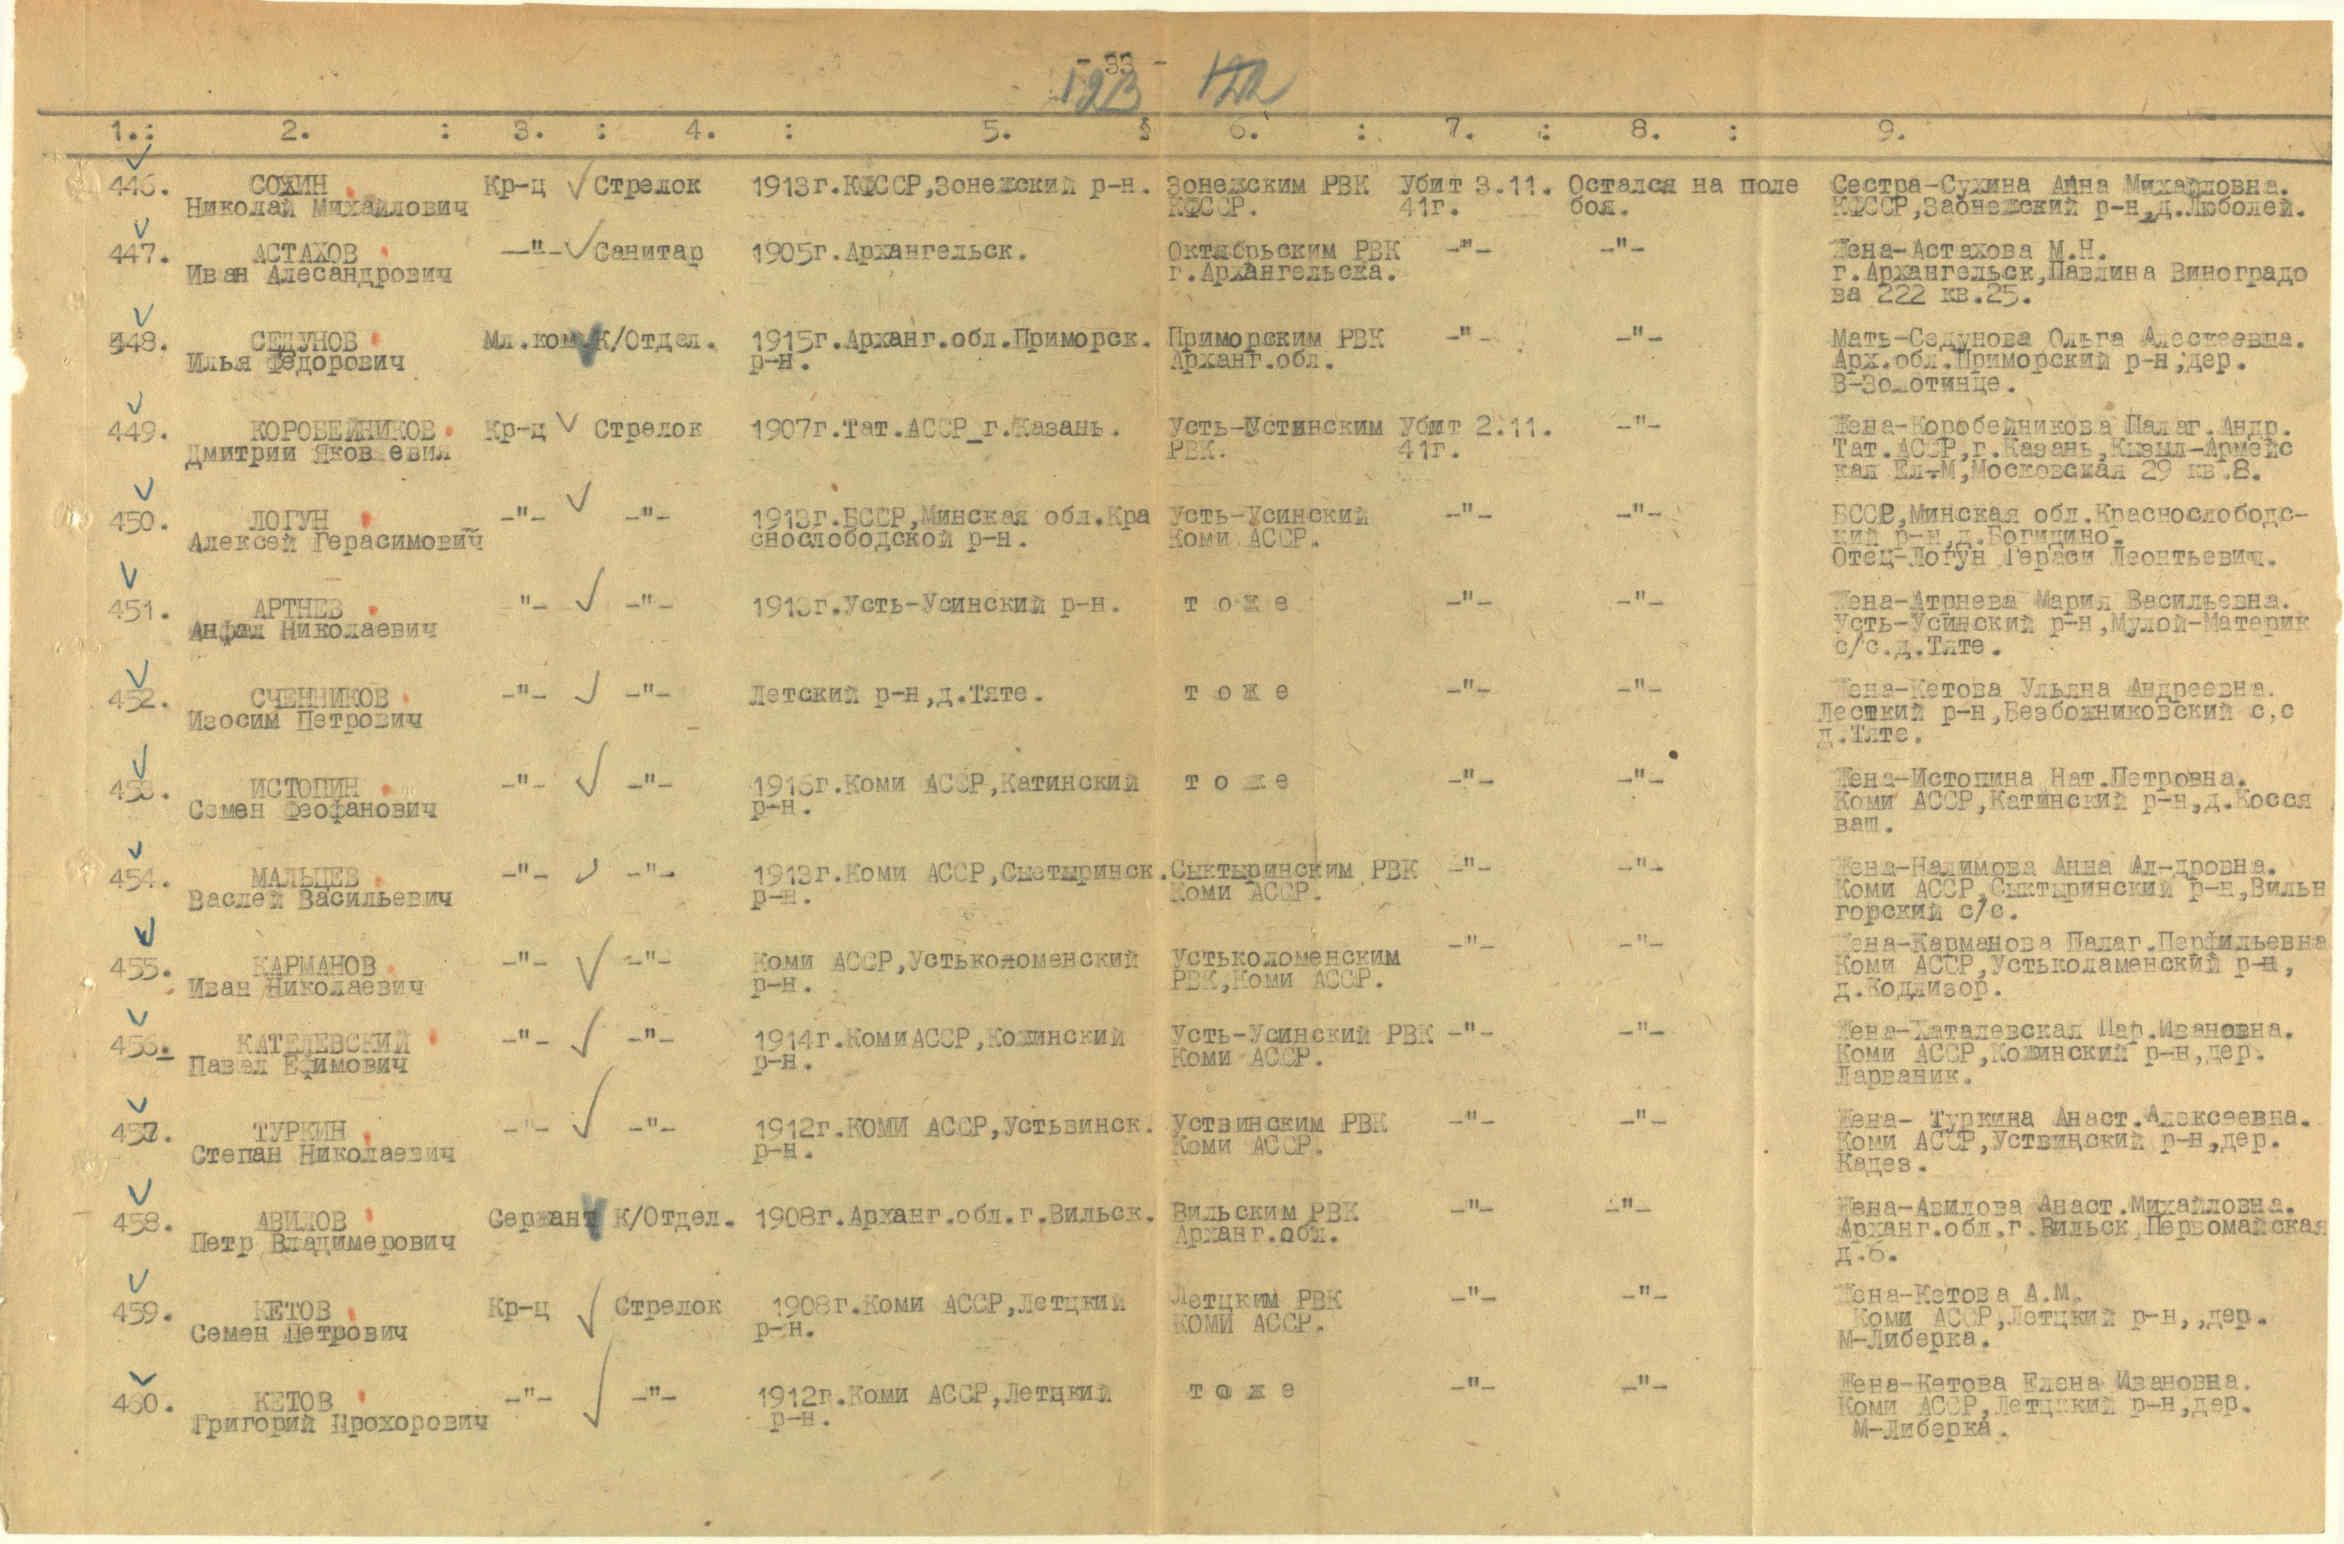 - 33 -
123 122
1.: 2. : 3. : 4. : 5. : 6. : 7. : 8. : 9.
446. СОХИН Кр-ц Стрелок 1913г.КФССР,Зонежский р-н. Зонежским РВК Убит 3.11. Остался на поле Сестра-Сухина Анна Михайловна.
Николай Михайлович КФССР. 41г. боя. КФССР,Заонежский р-н,д.Люболей.
447. АСТАХОВ -"- Санитар 1905г.Архангельск. Октябрьским РВК -"- -"- Жена-Астахова М.Н.
Иван Алесандрович г.Архангельска. г.Архангельск,Павлина Виноградо
ва 222 кв.25.
448. СЕДУНОВ Мл.ком К/Отдел. 1915г.Арханг.обл.Приморск. Приморским РВК -"- -"- Мать-Седунова Ольга Алескеевна.
Илья Федорович р-н. Арханг.обл. Арх.обл.Приморский р-н,дер.
В-Золотинце.
449. КОРОБЕЙНИКОВ Кр-ц Стрелок 1907г.Тат.АССР_г.Казань. Усть-Устинским Убит 2.11. -"- Жена-Коробейникова Палаг.Андр.
Дмитрии Яковлевич РВК. 41г. Тат.АССР,г.Казань,Кызыл-Армейс
кая Ел-М,Московская 29 кв.8.
450. ЛОГУН -"- -"- 1913г.БССР,Минская обл.Кра Усть-Усинский -"- -"- БССР,Минская обл.Краснослободс-
Алексей Герасимович снослободской р-н. Коми АССР. кий р-н,д.Богицино.
Отец-Логун Гераси Леонтьевич.
451. АРТНЕВ "- -"- 1913г.Усть-Усинский р-н. т о ж е -"- -"- Жена-Атрнева Мария Васильевна.
Анфал Николаевич Усть-Усинский р-н,Мулой-Материк
с/с.д.Тяте.
452. СЧЕННИКОВ -"- -"- Летский р-н,д.Тяте. т о ж е -"- -"- Жена-Кетова Ульяна Андреевна.
Изосим Петрович Лесткий р-н,Безбожниковский с,с
д.Тяте.
453. ИСТОПИН -"- -"- 1916г.Коми АССР,Катинский т о ж е -"- -"- Жена-Истопина Нат.Петровна.
Семен Феофанович р-н. Коми АССР,Катинский р-н,д.Косся
ваш.
454. МАЛЬЦЕВ -"- -"- 1913г.Коми АССР,Сыктыринск. Сыктыринским РВК -"- -"- Жена-Налимова Анна Ал-дровна.
Васлей Васильевич р-н. Коми АССР. Коми АССР,Сыктыринский р-н,Вильн
горский с/с.
455. КАРМАНОВ -"- -"- Коми АССР,Устьколоменский Устьколоменским -"- -"- Жена-Карманова Палаг.Перфильевна
Иван Николаевич р-н. РВК,Коми АССР. Коми АССР,Устьколаменский р-н,
д.Кодлизор.
456. КАТЕЛЕВСКИЙ -"- -"- 1914г.КомиАССР,Кожинский Усть-Усинский РВК -"- -"- Жена-Каталевская Пар.Ивановна.
Павел Ефимович р-н. Коми АССР. Коми АССР,Кожинский р-н,дер.
Ларваник.
457. ТУРКИН -"- -"- 1912г.КОМИ АССР,Устьвинск. Уствинским РВК -"- -"- Жена- Туркина Анаст.Алексеевна.
Степан Николаевич р-н. Коми АССР. Коми АССР,Уствинский р-н,дер.
Кадез.
458. АВИЛОВ Сержант К/Отдел. 1908г.Арханг.обл.г.Вильск. Вильским РВК -"- -"- Жена-Авилова Анаст.Михайловна.
Петр Владимерович Арханг.обл. Арханг.обл.г.Вильск,Первомайская
д.6.
459. КЕТОВ Кр-ц Стрелок 1908г.Коми АССР,Летцкий Летцким РВК -"- -"- Жена-Кетова А.М.
Семен Петрович р-н. КОМИ АССР. Коми АССР,Летцкий р-н,,дер.
М-Либерка.
460. КЕТОВ -"- -"- 1912г.Коми АССР,Летцкий т о ж е -"- -"- Жена-Кетова Елена Ивановна.
Григорий Прохорович р-н. Коми АССР,Летцкий р-н,дер.
М-Либерка.